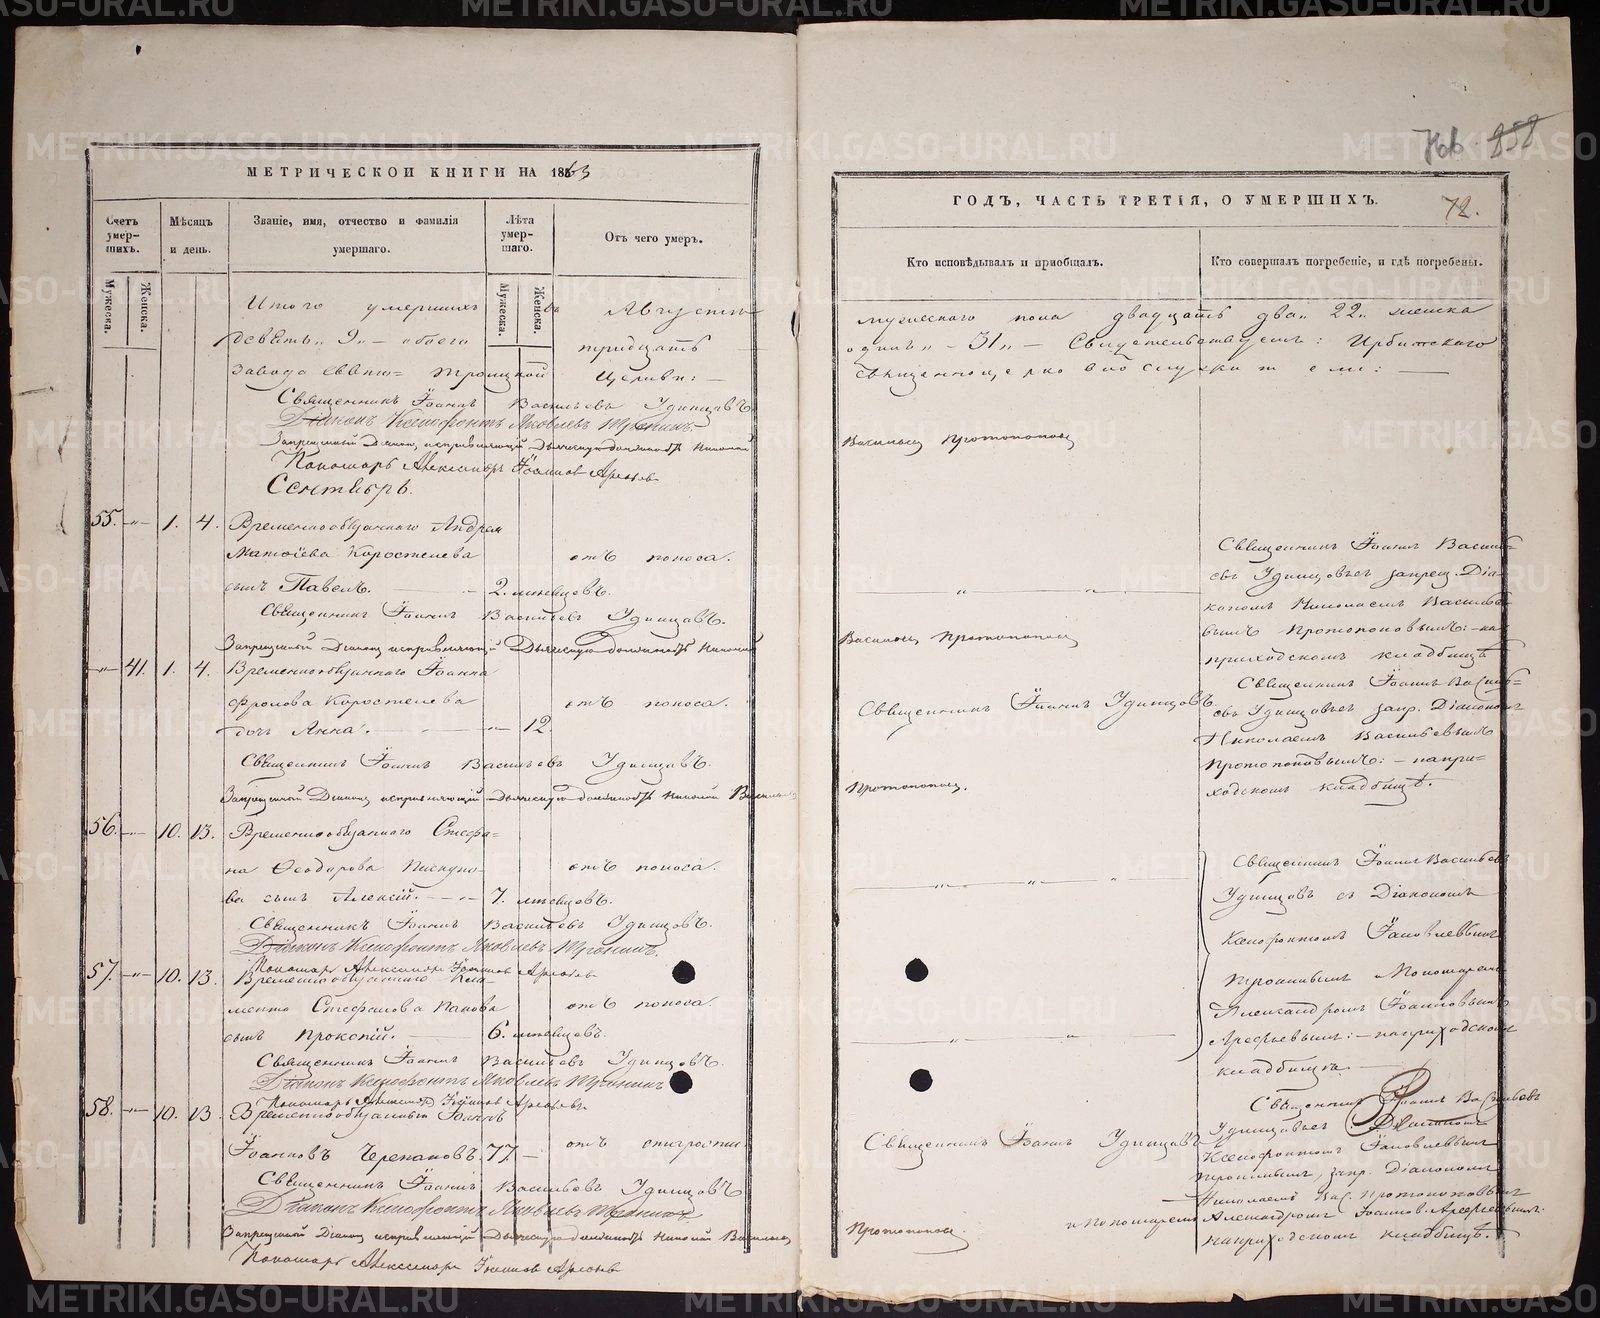 МЕТРИЧЕСКОЙ КНИГИ НА 1863
Счетъ умерших. Мѣсяцъ и день. Званіе, имя, отчество и фамилія умершаго. Лѣта умершаго. Отъ чего умеръ.
Мужеска. Женска. Мужеска. Женска.
Итого умершихъ въ Августѣ
девять „ 9 „ — обоего тридцать
завода Свято= Троицкой Церкви: —
Священникъ Іоаннъ Васильевъ Удинцовъ
Діаконъ Ксенофонтъ Яковлевъ Тронинъ.
Запрещенный Діаконъ, исправляющій Дьяческую должность Николай
Пономарь Александръ Іоаннов Арефьев
Сентябрь.
55. „ 1. 4. Временнообязаннаго Андрея
Матѳіева Коростелева отъ поноса.
сынъ Павелъ. 2. мѣсяцовъ.
Священникъ Іоаннъ Васильевъ Удинцовъ.
Запрещенный Діаконъ исправляющій Дьяческую должность Николай
„ 41. 1. 4. Временнообязаннаго Іоанна
Фролова Коростелева отъ поноса.
дочь Анна. „ 12.
Священникъ Іоаннъ Васильевъ Удинцовъ.
Запрещенный Діаконъ исправляющій дьяческую должность Николай Васильевъ
56. „ 10. 13. Временнообязаннаго Стефа=
на Ѳеодорова Пискуно отъ поноса.
ва сынъ Алексій. 7. мѣсяцовъ.
Священникъ Іоаннъ Васильевъ Удинцовъ.
Діаконъ Ксенофонтъ Яковлевъ Тронинъ.
Пономарь Александръ Іоаннов Арефьев
57. „ 10. 13. Временнообязаннаго Кли=
мента Стефанова Панова отъ поноса.
сынъ Прокопій. 6. мѣсяцовъ.
Священникъ Іоаннъ Васильевъ Удинцовъ.
Діаконъ Ксенофонтъ Яковлевъ Тронинъ
Пономарь Александръ Іоаннов Арефьев
58. „ 10. 13. Временнообязанный Іоаннъ
Іоанновъ Черепановъ. 77. — отъ старости.
Священникъ Іоаннъ Васильевъ Удинцовъ
Діаконъ Ксенофонтъ Яковлевъ Тронинъ
Запрещенный Діаконъ исправляющій Дьяческую должность Николай Васильевъ
Пономарь Александръ Іоаннов Арефьев
858
ГОДЪ, ЧАСТЬ ТРЕТІЯ, О УМЕРШИХЪ. 72.
Кто исповѣдывалъ и пріобщалъ. Кто совершалъ погребеніе, и гдѣ погребены.
мужескаго пола двадцать два „ 22 „ женска
одинъ „ — 31 „ — Свидетельствуемъ: Ирбитскаго
священноцерковнослужители: —
Васильевъ Протопоповъ
Священникъ Іоаннъ Василь=
евъ Удинцовъ съ запрещ. Діа=
кономъ Николаемъ Василье
вымъ Протопоповымъ: — на
приходскомъ кладбищѣ
Васильевъ Протопоповъ
Священникъ Іоаннъ Удинцовъ
Священникъ Іоаннъ Василь=
евъ Удинцовъ съ запр. Діакономъ
Николаемъ Васильевымъ
Протопоповымъ: — на при=
ходскомъ кладбищѣ.
Протопоповъ.
Священникъ Іоаннъ Васильевъ
Удинцовъ съ Діакономъ
Ксенофонтомъ Іаковлевымъ
Тронинымъ и Пономаремъ
Александромъ Іоанновымъ
Арефьевымъ: — на приходскомъ
кладбищѣ. —
Священникъ Іоаннъ Удинцовъ
Священникъ Іоаннъ Васильевъ
Удинцовъ съ Діакономъ
Ксенофонтомъ Іаковлевымъ
Тронинымъ, запр. Діакономъ
Николаемъ Вас. Протопоповымъ
и Пономаремъ Александромъ Іоаннов. Арефьевымъ:
на приходскомъ кладбищѣ.
Протопоповъ.
METRIKI.GASO-URAL.RU